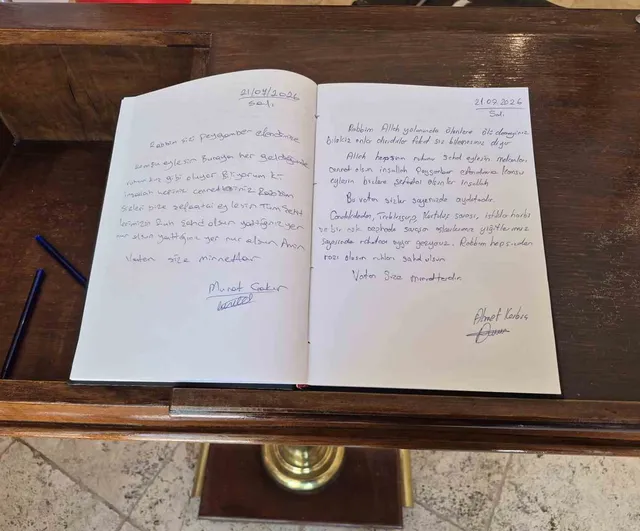 21/07/2026
Salı
Rabbim sizi peygamber efendimize
komşu eylesin Buraya her geldiğimde
gibi oluyor Biliyorum ki
Rabbim
sizleri bize şefaatçi eylesin Tüm
Ruhu Şad olsun yattığınız yer
nur olsun yattığınız yer nur olsun Amin
Vatan size minnettar
Murat
21.07.2026
Salı
Rabbim Allah yolunda ölenlere ölü demeyiniz
Bilakis onlar diridirler fakat siz bilemezsiniz diyor
Allah hepsinin ruhunu şad eylesin mekanları
cennet olsun inşallah Peygamber efendimize komşu
eylesin bizlere şefaatçi olsunlar inşallah
Bu vatan sizler sayesinde ayaktadır.
Çanakkaleden, Kurtuluş savaşı, istiklal harbi
ve bir çok cephede savaşın yiğitlerimiz
sayesinde rahatca Rabbim hepsinden
razı olsun ruhları şad olsun
Vatan Size Minnettardır
Ahmet